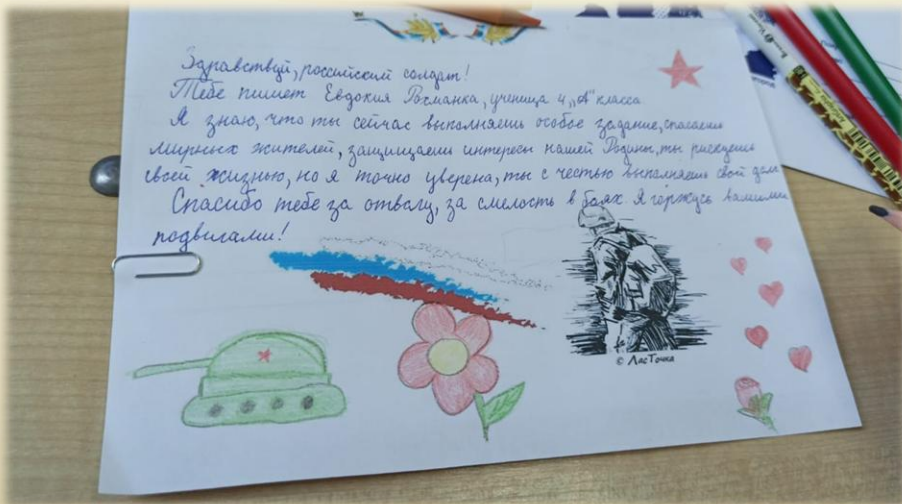 Здравствуй, российский солдат!
Тебе пишет Евдокия Рахманка, ученица 4 „А" класса.
Я знаю, что ты сейчас выполняешь особое задание, спасаешь
мирных жителей, защищаешь интересы нашей Родины, ты рискуешь
своей жизнью, но я точно уверена, ты с честью выполняешь свой долг.
Спасибо тебе за отвагу, за смелость в боях. Я горжусь вашими
подвигами!
© ЛасТочка